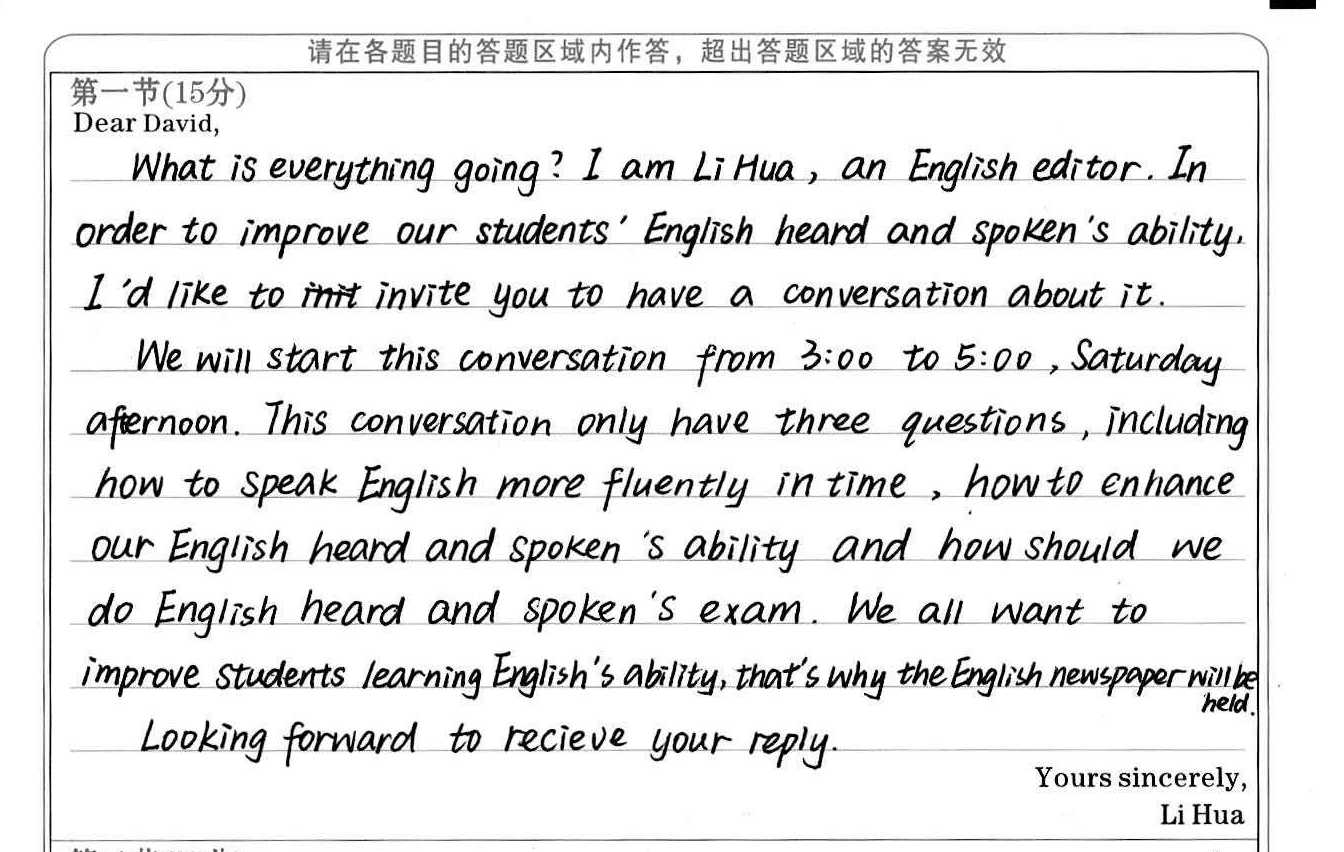 请在各题目的答题区域内作答，超出答题区域的答案无效
第一节(15分)
Dear David,
What is everything going? I am Li Hua, an English editor. In
order to improve our students' English heard and spoken's ability,
I'd like to init invite you to have a conversation about it.
We will start this conversation from 3:00 to 5:00, Saturday
afternoon. This conversation only have three questions, including
how to speak English more fluently in time, how to enhance
our English heard and spoken's ability and how should we
do English heard and spoken's exam. We all want to
improve students learning English's ability, that's why the English newspaper will be
held.
Looking forward to recieve your reply.
Yours sincerely,
Li Hua